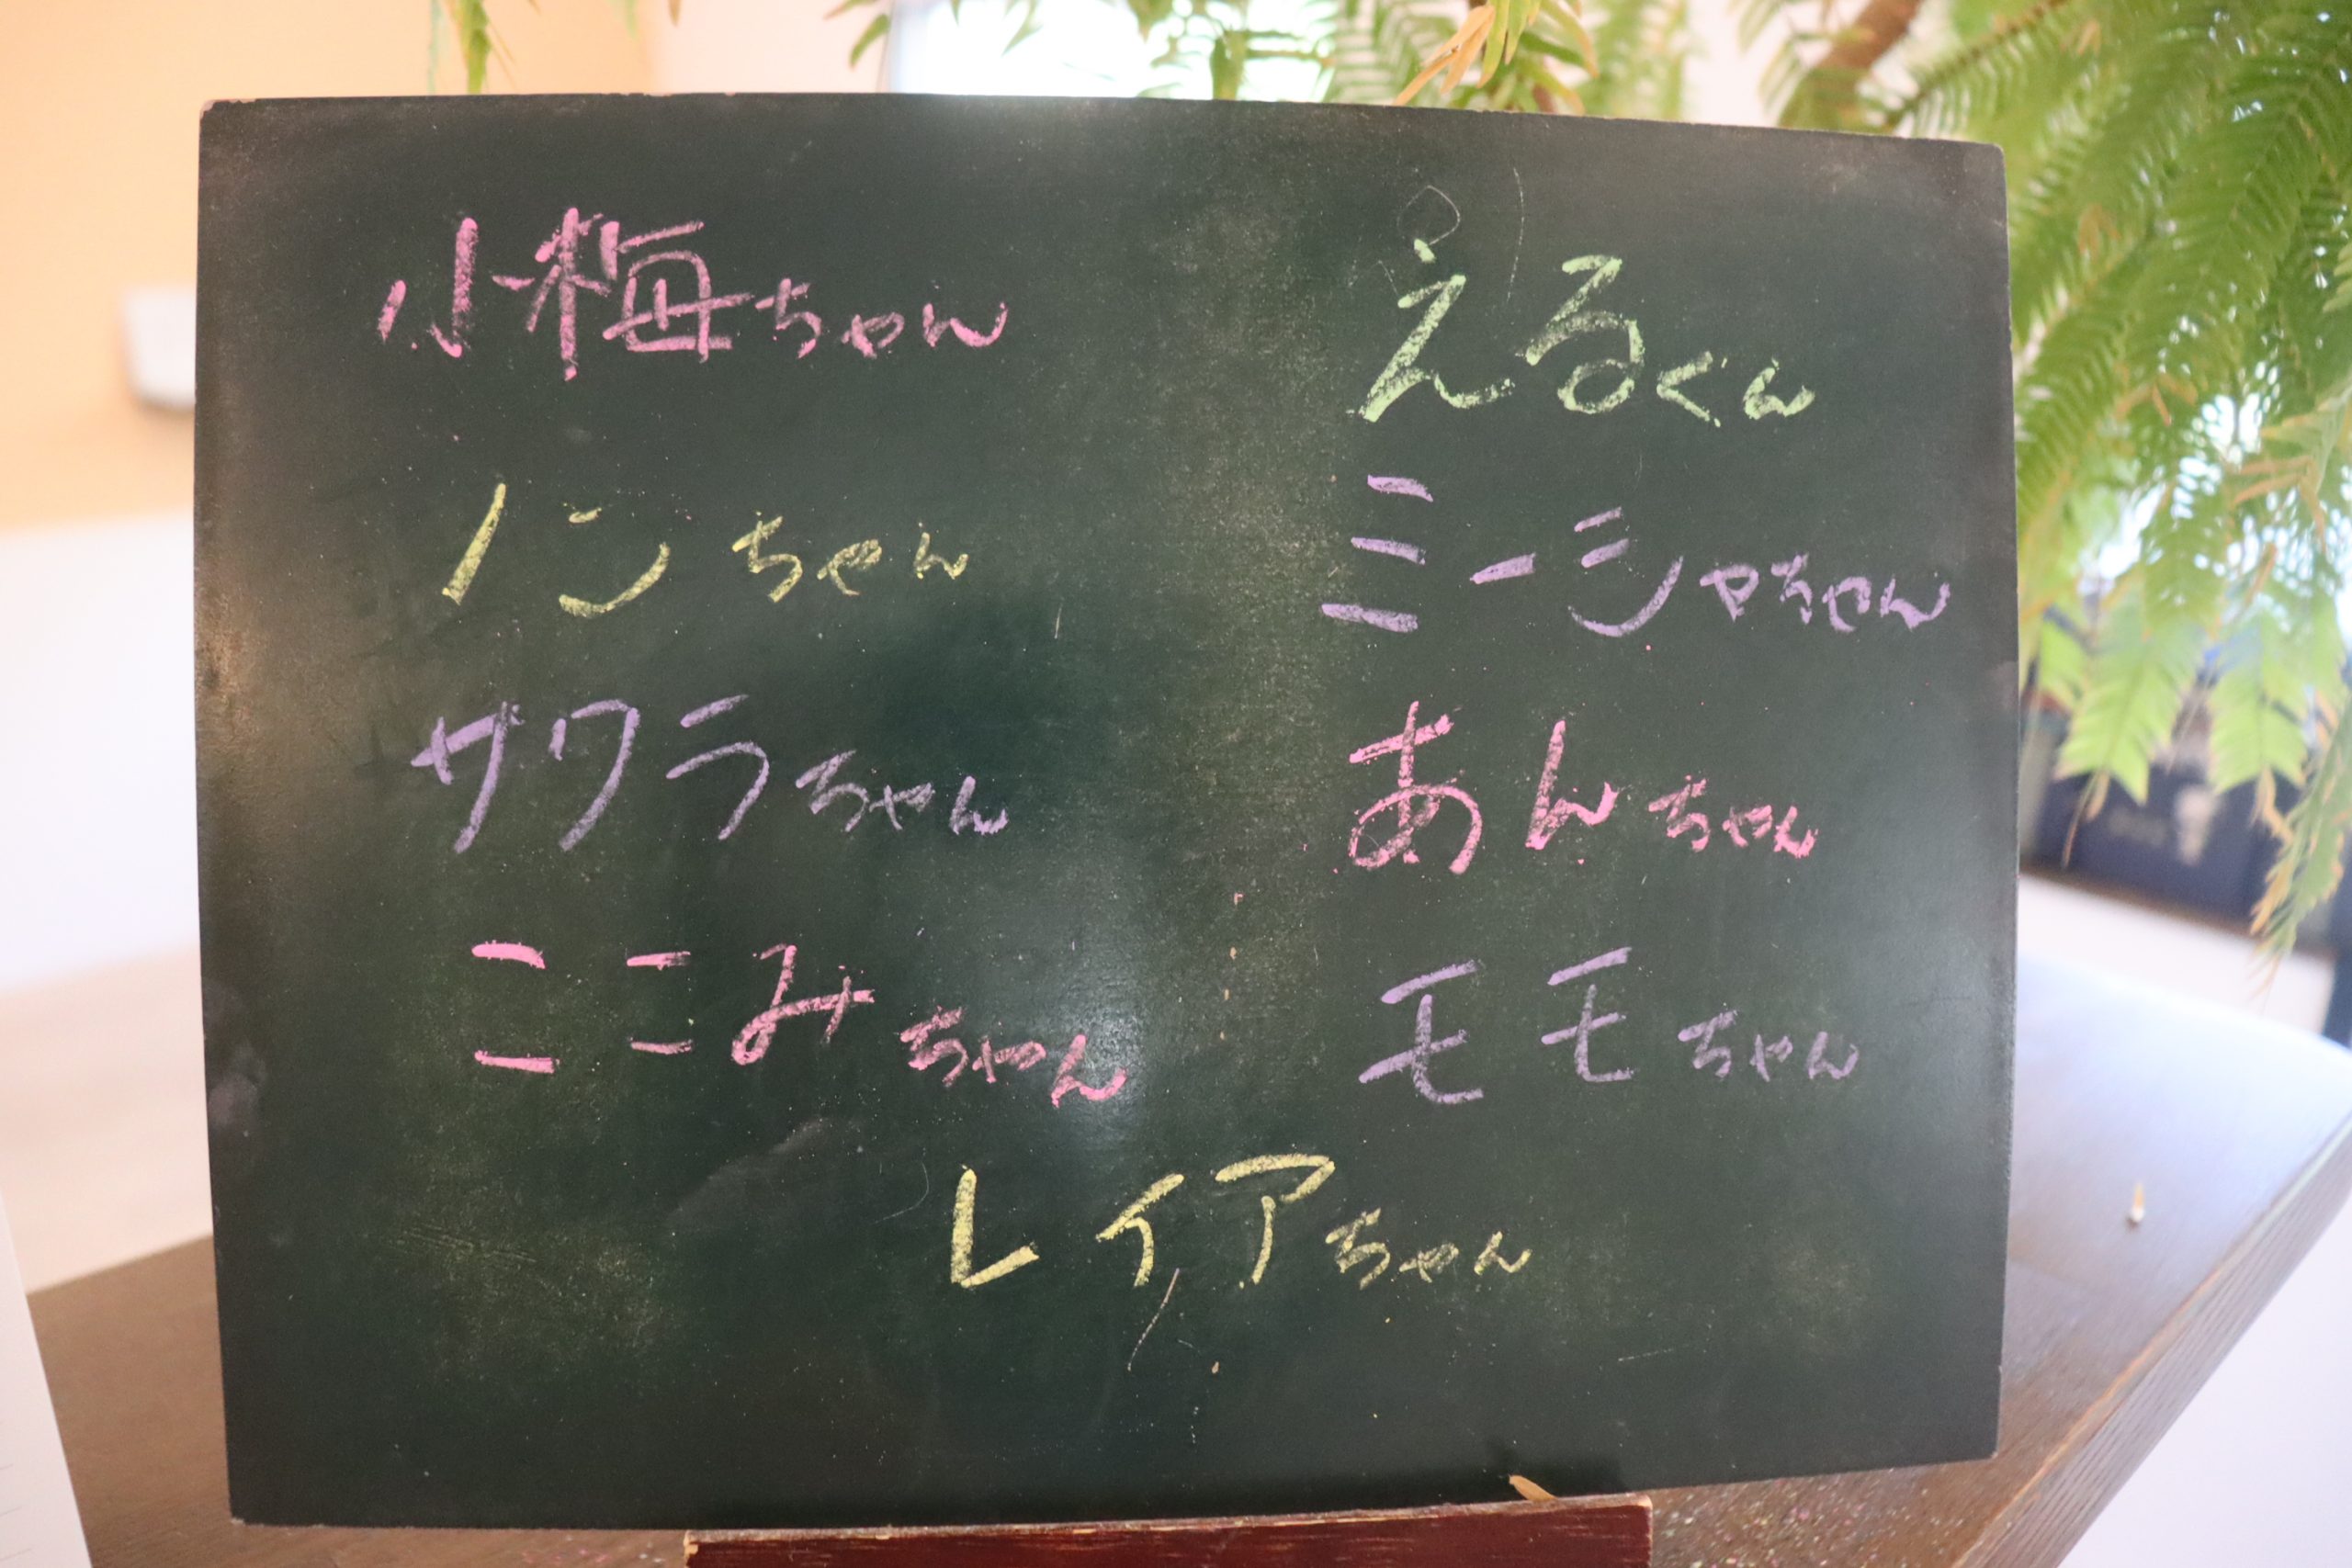 小梅ちゃん
えるくん
ノンちゃん
ミーシャちゃん
サワラちゃん
あんちゃん
ここみちゃん
モモちゃん
レイアちゃん